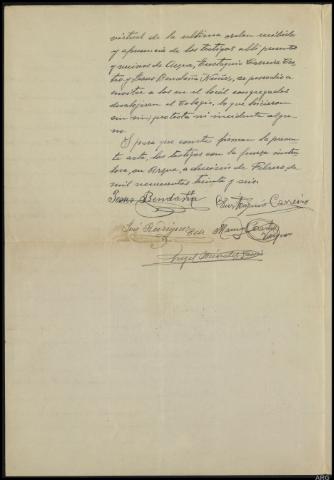 virtud de la ultima orden recibida
y a presencia de los testigos allí presen
y vecinos de Arzua, Eustaquio Carreira Cas
tro y Jesus Bendaña Nuñez, se procedio a
a los en el local congregados
desalojaran el Colegio, lo que hicieron
sin protesta ni incidente algu-
no.
Y para que conste firman la presen
te acta, los testigos con la fuerza instru
tora, en Arzua, a dieciseis de Febrero de
mil novecientos treinta y seis.
Jesus Bendaña Eustaquio Carreira
José Rodriguez Manuel
Angel
ARG